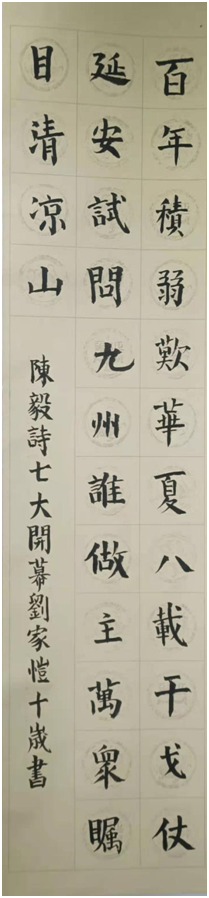 百年積弱歎華夏八載干戈仗
延安試問九州誰做主萬眾瞩
目清凉山
陳毅詩七大開幕劉家愷十歲書